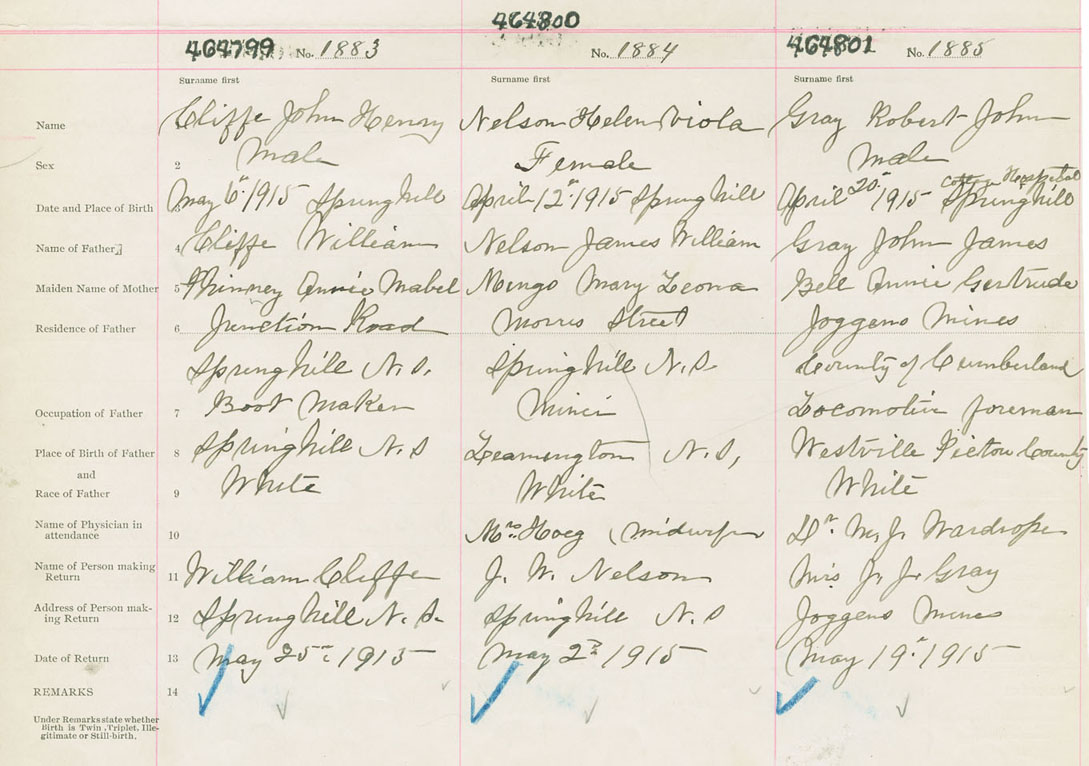 464799 No. 1883 464800 No. 1884 464801 No. 1885
Surname first Surname first Surname first
Name 1 Cliffe John Henry Nelson Helen Viola Gray Robert John
Sex 2 Male Female Male
Cottage Hospital
Date and Place of Birth 3 May 6th 1915 Springhill April 12th 1915 Springhill April 20th 1915 Springhill
Name of Father 4 Cliffe William Nelson James William Gray John James
Maiden Name of Mother 5 Annie Mabel Mingo Mary Leona Bell Annie Gertrude
Residence of Father 6 Junction Road Morris Street Joggens Mines
Springhill N.S. Springhill N.S. County of Cumberland
Occupation of Father 7 Boot Maker Miner Locomotive foreman
Place of Birth of Father 8 Springhill N.S Leamington N.S, Westville Pictou County
and
Race of Father 9 White White White
Name of Physician in
attendance 10 Mrs Hoeg (midwife Dr. M. J. Wardrope
Name of Person making
Return 11 William Cliffe J. W. Nelson Mrs J. J. Gray
Address of Person mak-
ing Return 12 Springhill N.S. Springhill N.S Joggens Mines
Date of Return 13 May 25th 1915 May 2nd 1915 May 19th 1915
REMARKS 14
Under Remarks state whether
Birth is Twin, Triplet, Ille-
gitimate or Still-birth.